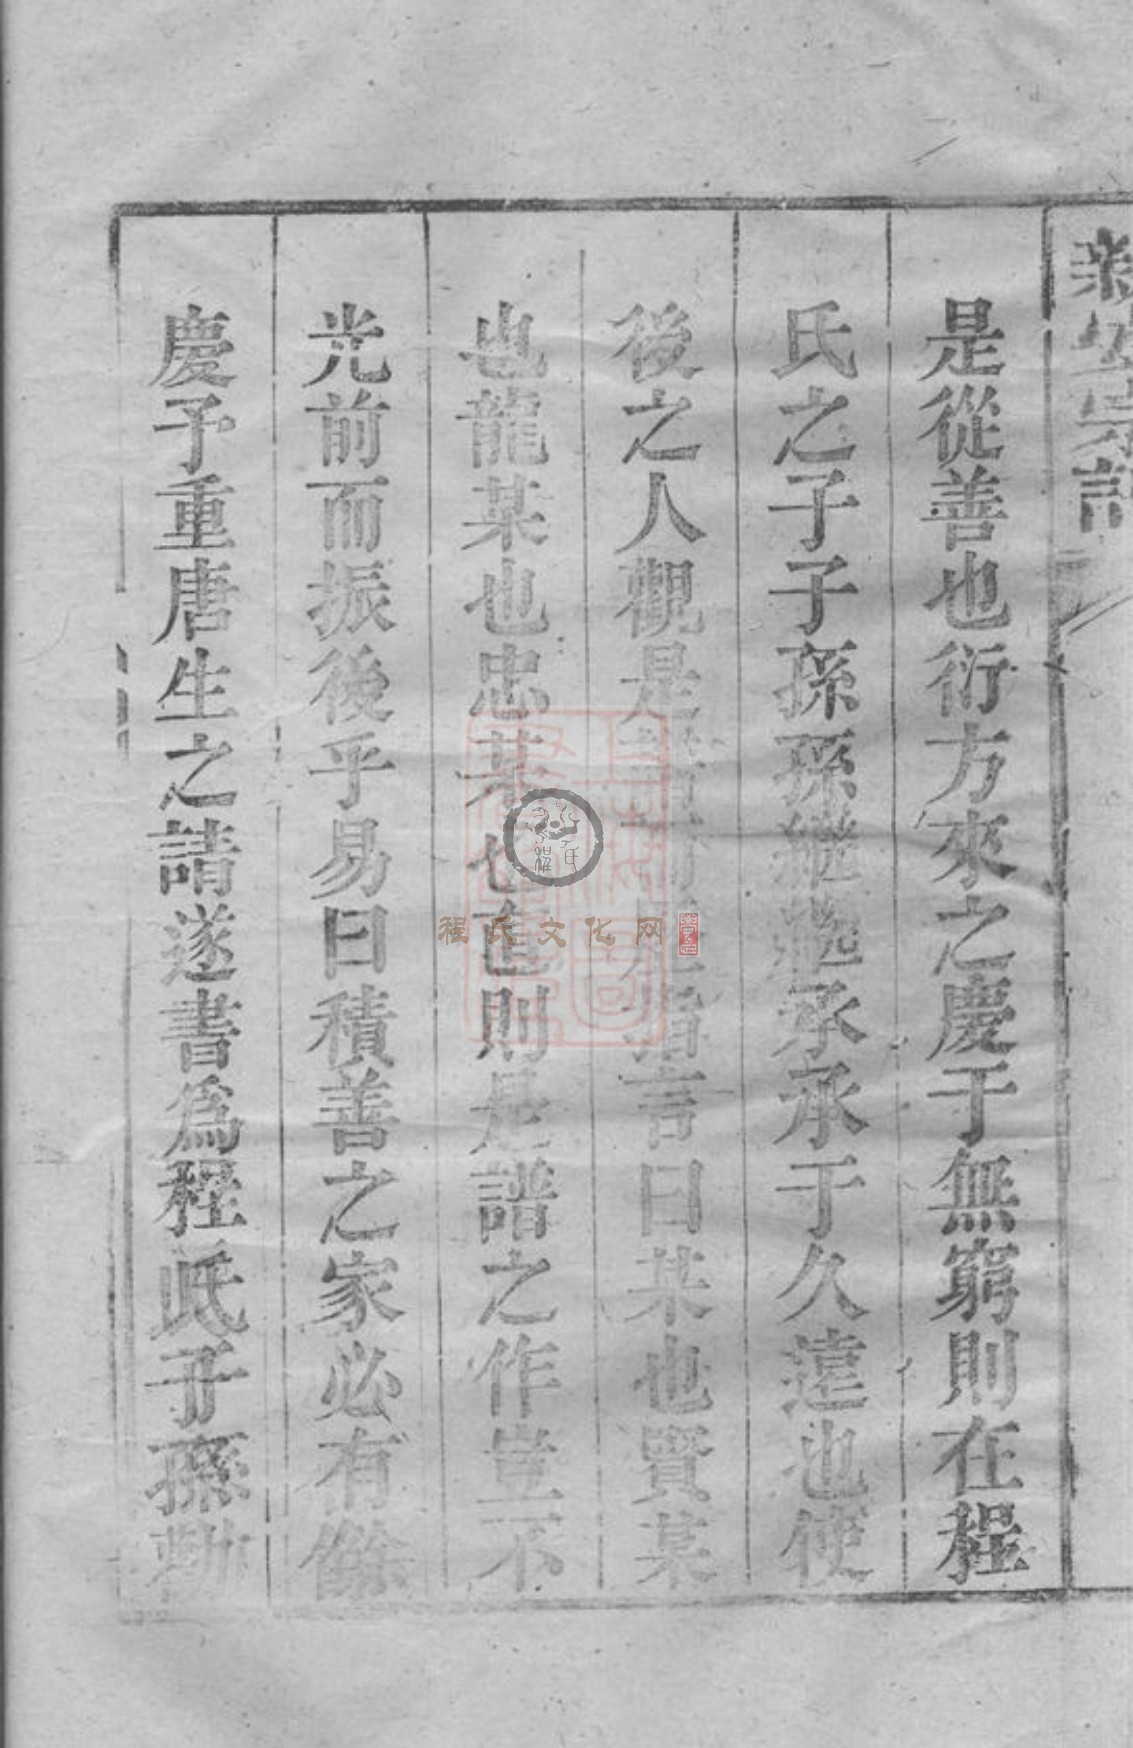 是從善也衍方來之慶于無窮則在程
氏之子子孫孫繼繼承承于久遠也使
後之人觀是譜言曰某也賢某
也龍某也忠某也直則是譜之作豈不
光前而振後乎易曰積善之家必有餘
慶予重唐生之請遂書爲程氏子孫勸
程氏文化网